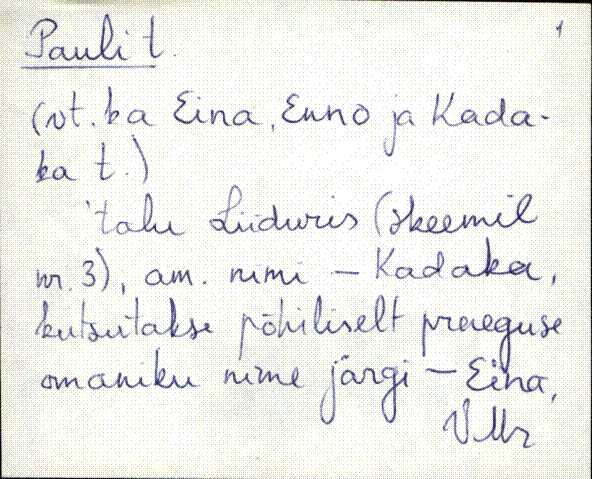 Pauli t. 1
(vt. ka Eina, Enno ja Kada-
ka t.)
'talu Liiduris (skeemil
nr. 3), am. nimi – Kadaka,
kutsutakse põhiliselt praeguse
omaniku nime järgi – Eina,
VMr